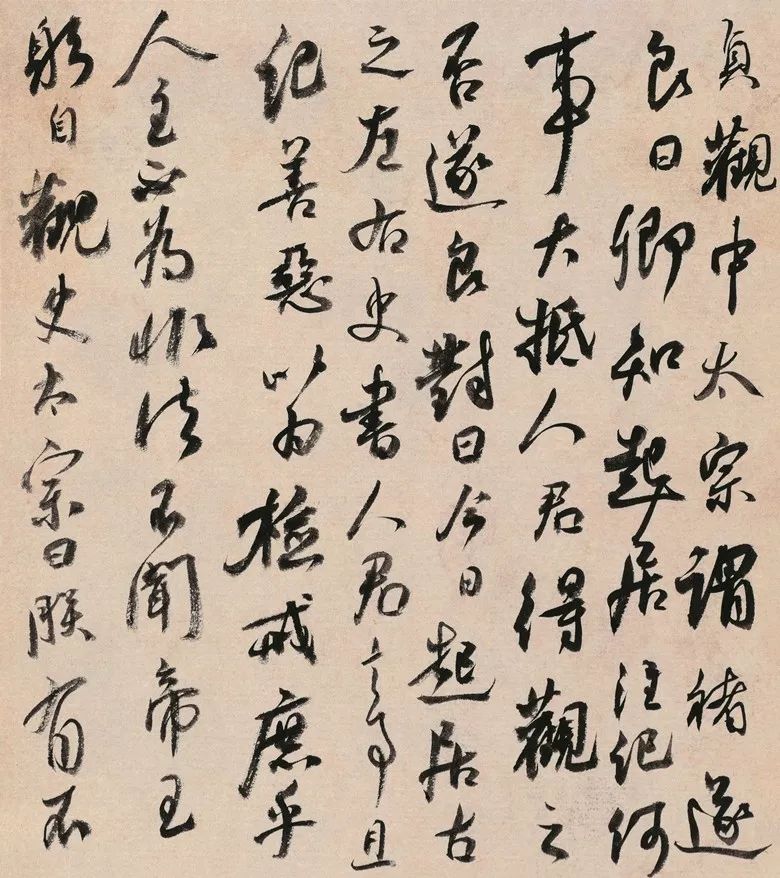 貞觀中太宗謂褚遂
良曰卿知起居注紀何
事大抵人君得觀之
否遂良對曰今日起居古
之左右史書人君言事且
紀善惡以為檢戒庶乎
人主不為非法不聞帝王
躬自觀史太宗曰朕有不